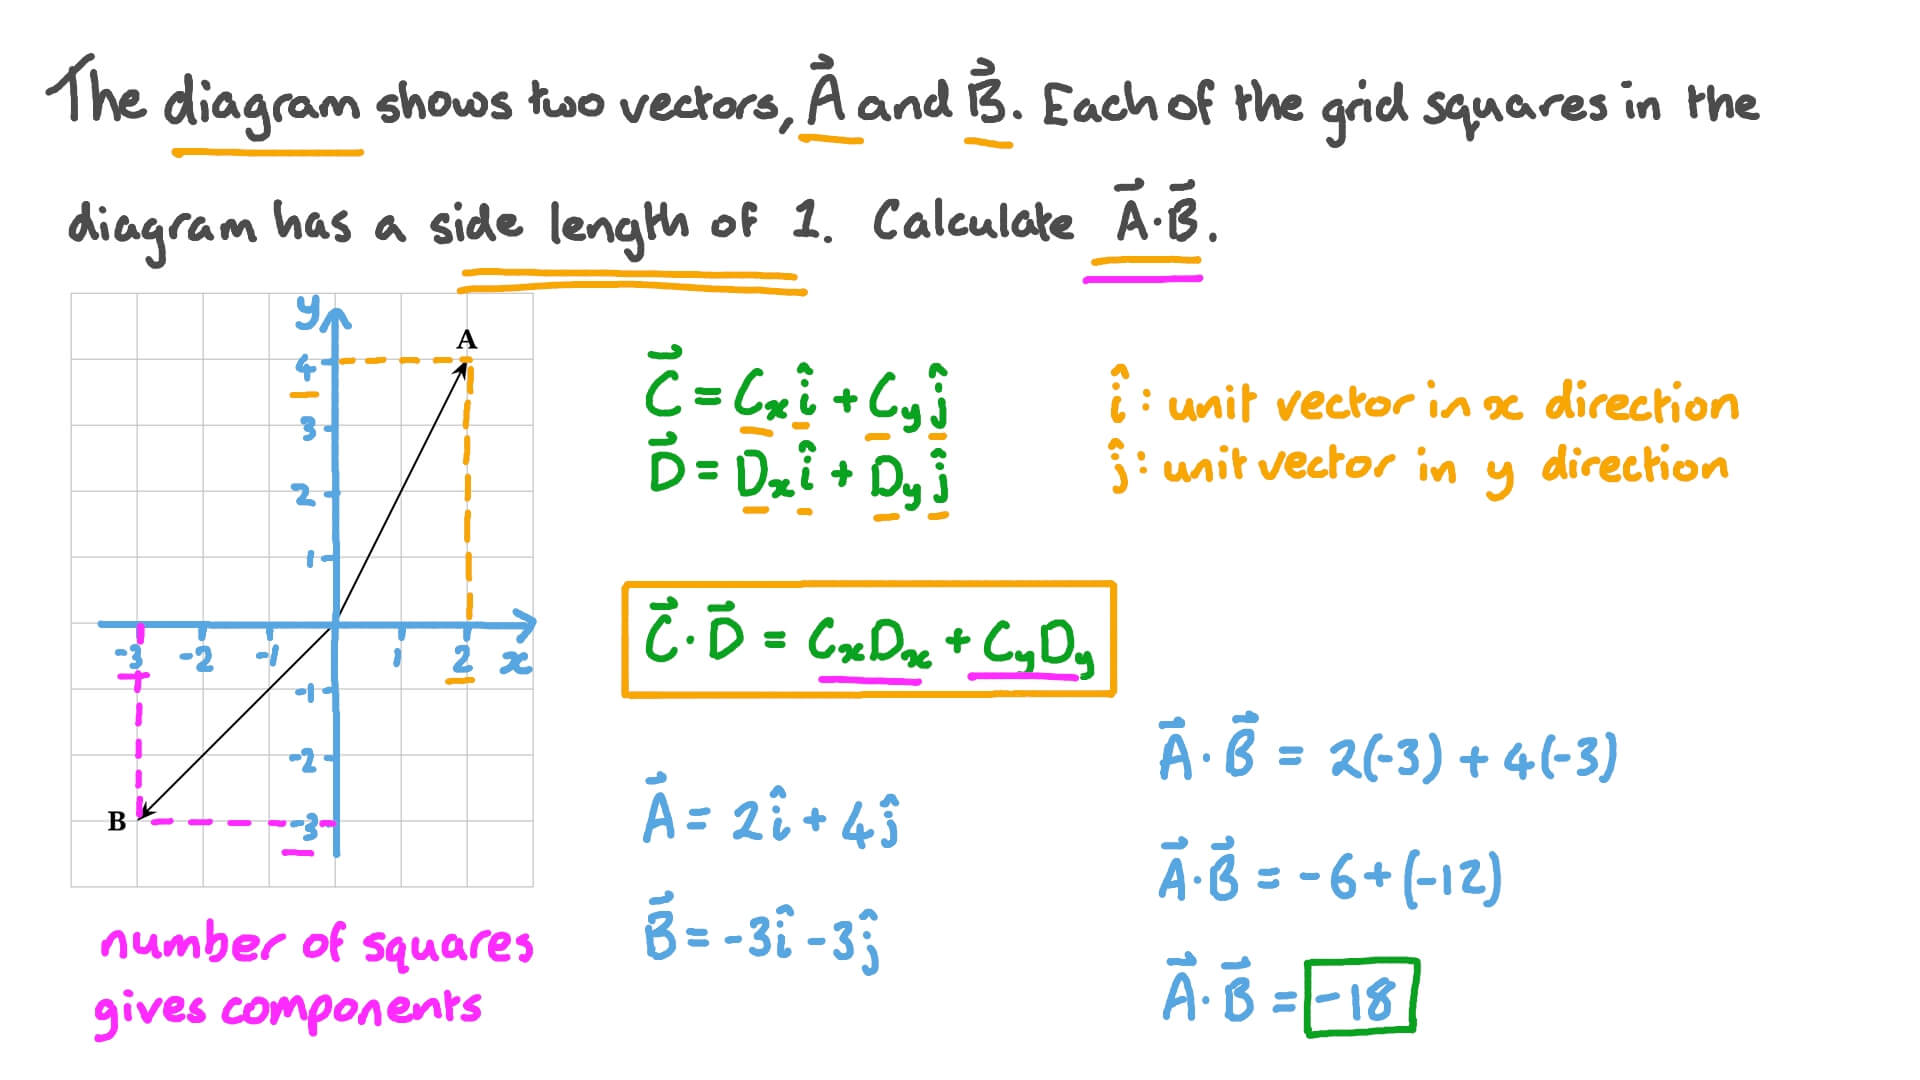 The diagram shows two vectors, A⃗ and B⃗. Each of the grid squares in the
diagram has a side length of 1. Calculate A⃗·B⃗.
y
A
4
3
2
1
-3 -2 -1 1 2 x
-1
-2
B
-3
number of squares
gives components
C⃗ = Cₓî + C_yĵ
D⃗ = Dₓî + D_yĵ
î: unit vector in x direction
ĵ: unit vector in y direction
C⃗·D⃗ = CₓDₓ + C_yD_y
A⃗ = 2î + 4ĵ
B⃗ = -3î -3ĵ
A⃗·B⃗ = 2(-3) + 4(-3)
A⃗·B⃗ = -6 + (-12)
A⃗·B⃗ = -18